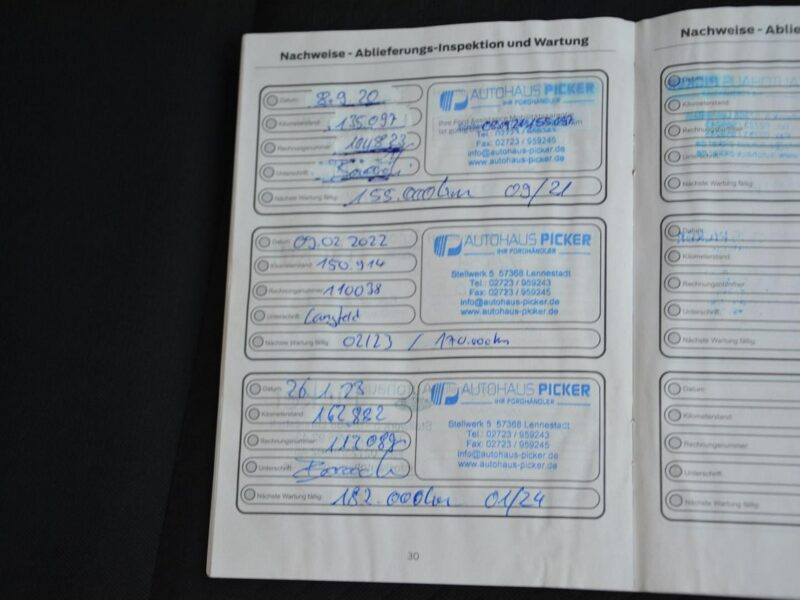 Nachweise - Ablieferungs-Inspektion und Wartung
Datum 8.9.20
Kilometerstand 135.097
Rechnungsnummer
Unterschrift
Nächste Wartung fällig 155.000km 09/21
AUTOHAUS PICKER
IHR FORDHÄNDLER
Tel.: 02723 / 959243
Fax: 02723 / 959245
info@autohaus-picker.de
www.autohaus-picker.de
Datum 09.02.2022
Kilometerstand 150.914
Rechnungsnummer 110038
Unterschrift Langfeld
Nächste Wartung fällig 02/23 / 170.000km
AUTOHAUS PICKER
IHR FORDHÄNDLER
Stellwerk 5 57368 Lennestadt
Tel.: 02723 / 959243
Fax: 02723 / 959245
info@autohaus-picker.de
www.autohaus-picker.de
Datum 26.1.23
Kilometerstand 162.882
Rechnungsnummer
Unterschrift
Nächste Wartung fällig 182.000km 01/24
AUTOHAUS PICKER
IHR FORDHÄNDLER
Stellwerk 5 57368 Lennestadt
Tel.: 02723 / 959243
Fax: 02723 / 959245
info@autohaus-picker.de
www.autohaus-picker.de
30
Nachweise - Ablie
Datum
Kilometerstand
Rechnungsnummer
Unterschrift
Nächste Wartung fällig
Datum
Kilometerstand
Rechnungsnummer
Unterschrift
Nächste Wartung fällig
Datum
Kilometerstand
Rechnungsnummer
Unterschrift
Nächste Wartung fällig